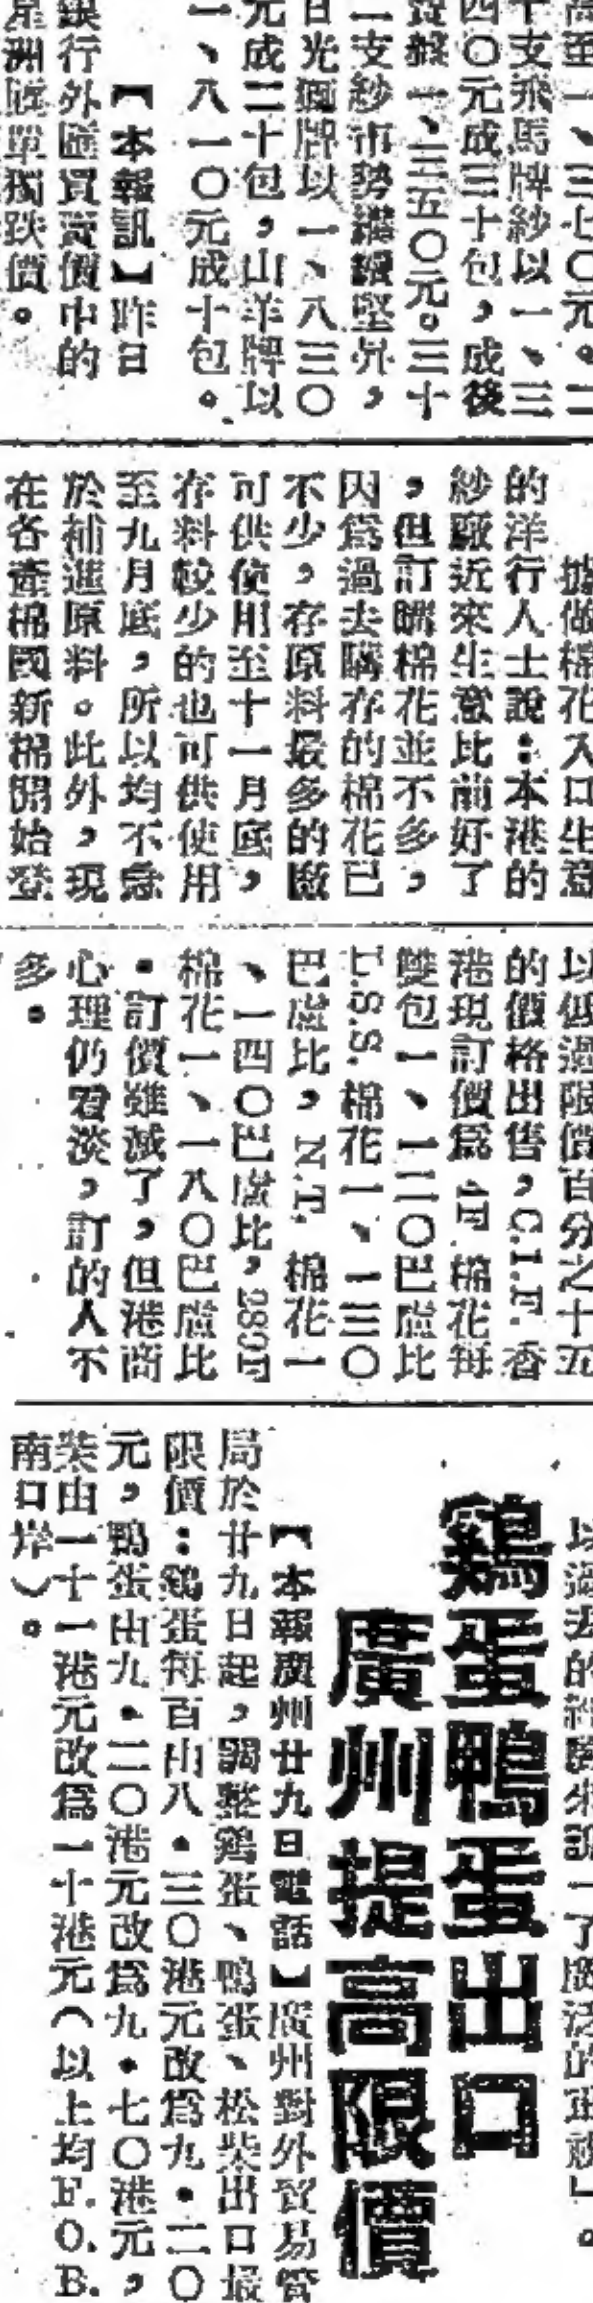 高至一、三七〇元。二
十支飛馬牌紗以一、三
四〇元成三十包,成後
一、三五〇元。三十
二支紗市勢繼續堅昂,
日光牌以一、八三〇
元成二十包,山羊牌以
一、八一〇元成十包。
【本報訊】昨日
銀行外匯買賣價中的
星洲匯單獨跌價。
據做棉花入口生意
的洋行人士說:本港的
紗廠近來生意比前好了
,但訂購棉花並不多,
因爲過去購存的棉花已
不少,存原料最多的廠
可供使用至十一月底,
存料較少的也可供使用
至九月底,所以均不急
於補進原料。此外,現
在各產棉國新棉開始登
以低過限價百分之十五
的價格出售,C.I.F.香
港現訂價爲4F.棉花每
雙包一、一二〇巴盧比
L.S.S.棉花一、一三〇
巴盧比,N.T.棉花一
、一四〇巴盧比,289F
棉花一、一八〇巴盧比
。訂價雖減了,但港商
心理仍看淡,訂的人不
多。
以過去的來說一了的」。
鷄蛋鴨蛋出口
廣州提高限價
【本報廣州廿九日電話】廣州對外貿易管
局於廿九日起,調整鷄蛋、鴨蛋、松柴出口最
限價:鷄蛋每百由八.三〇港元改爲九.二〇
元,鴨蛋由九.二〇港元改爲九.七〇港元,
柴由一十一港元改爲一十港元(以上均F.O.B.
南口岸)。